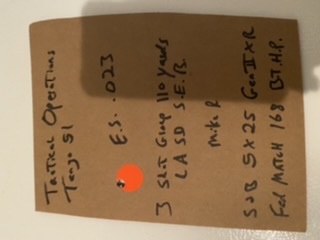 Tactical Operations
Tango 51
E.S. .023
3 Shot Group 110 yards
LASD S.E.B.
Mike R
S&B 5x25 Gen II XR
Fed MATCH 168 BT.H.P.